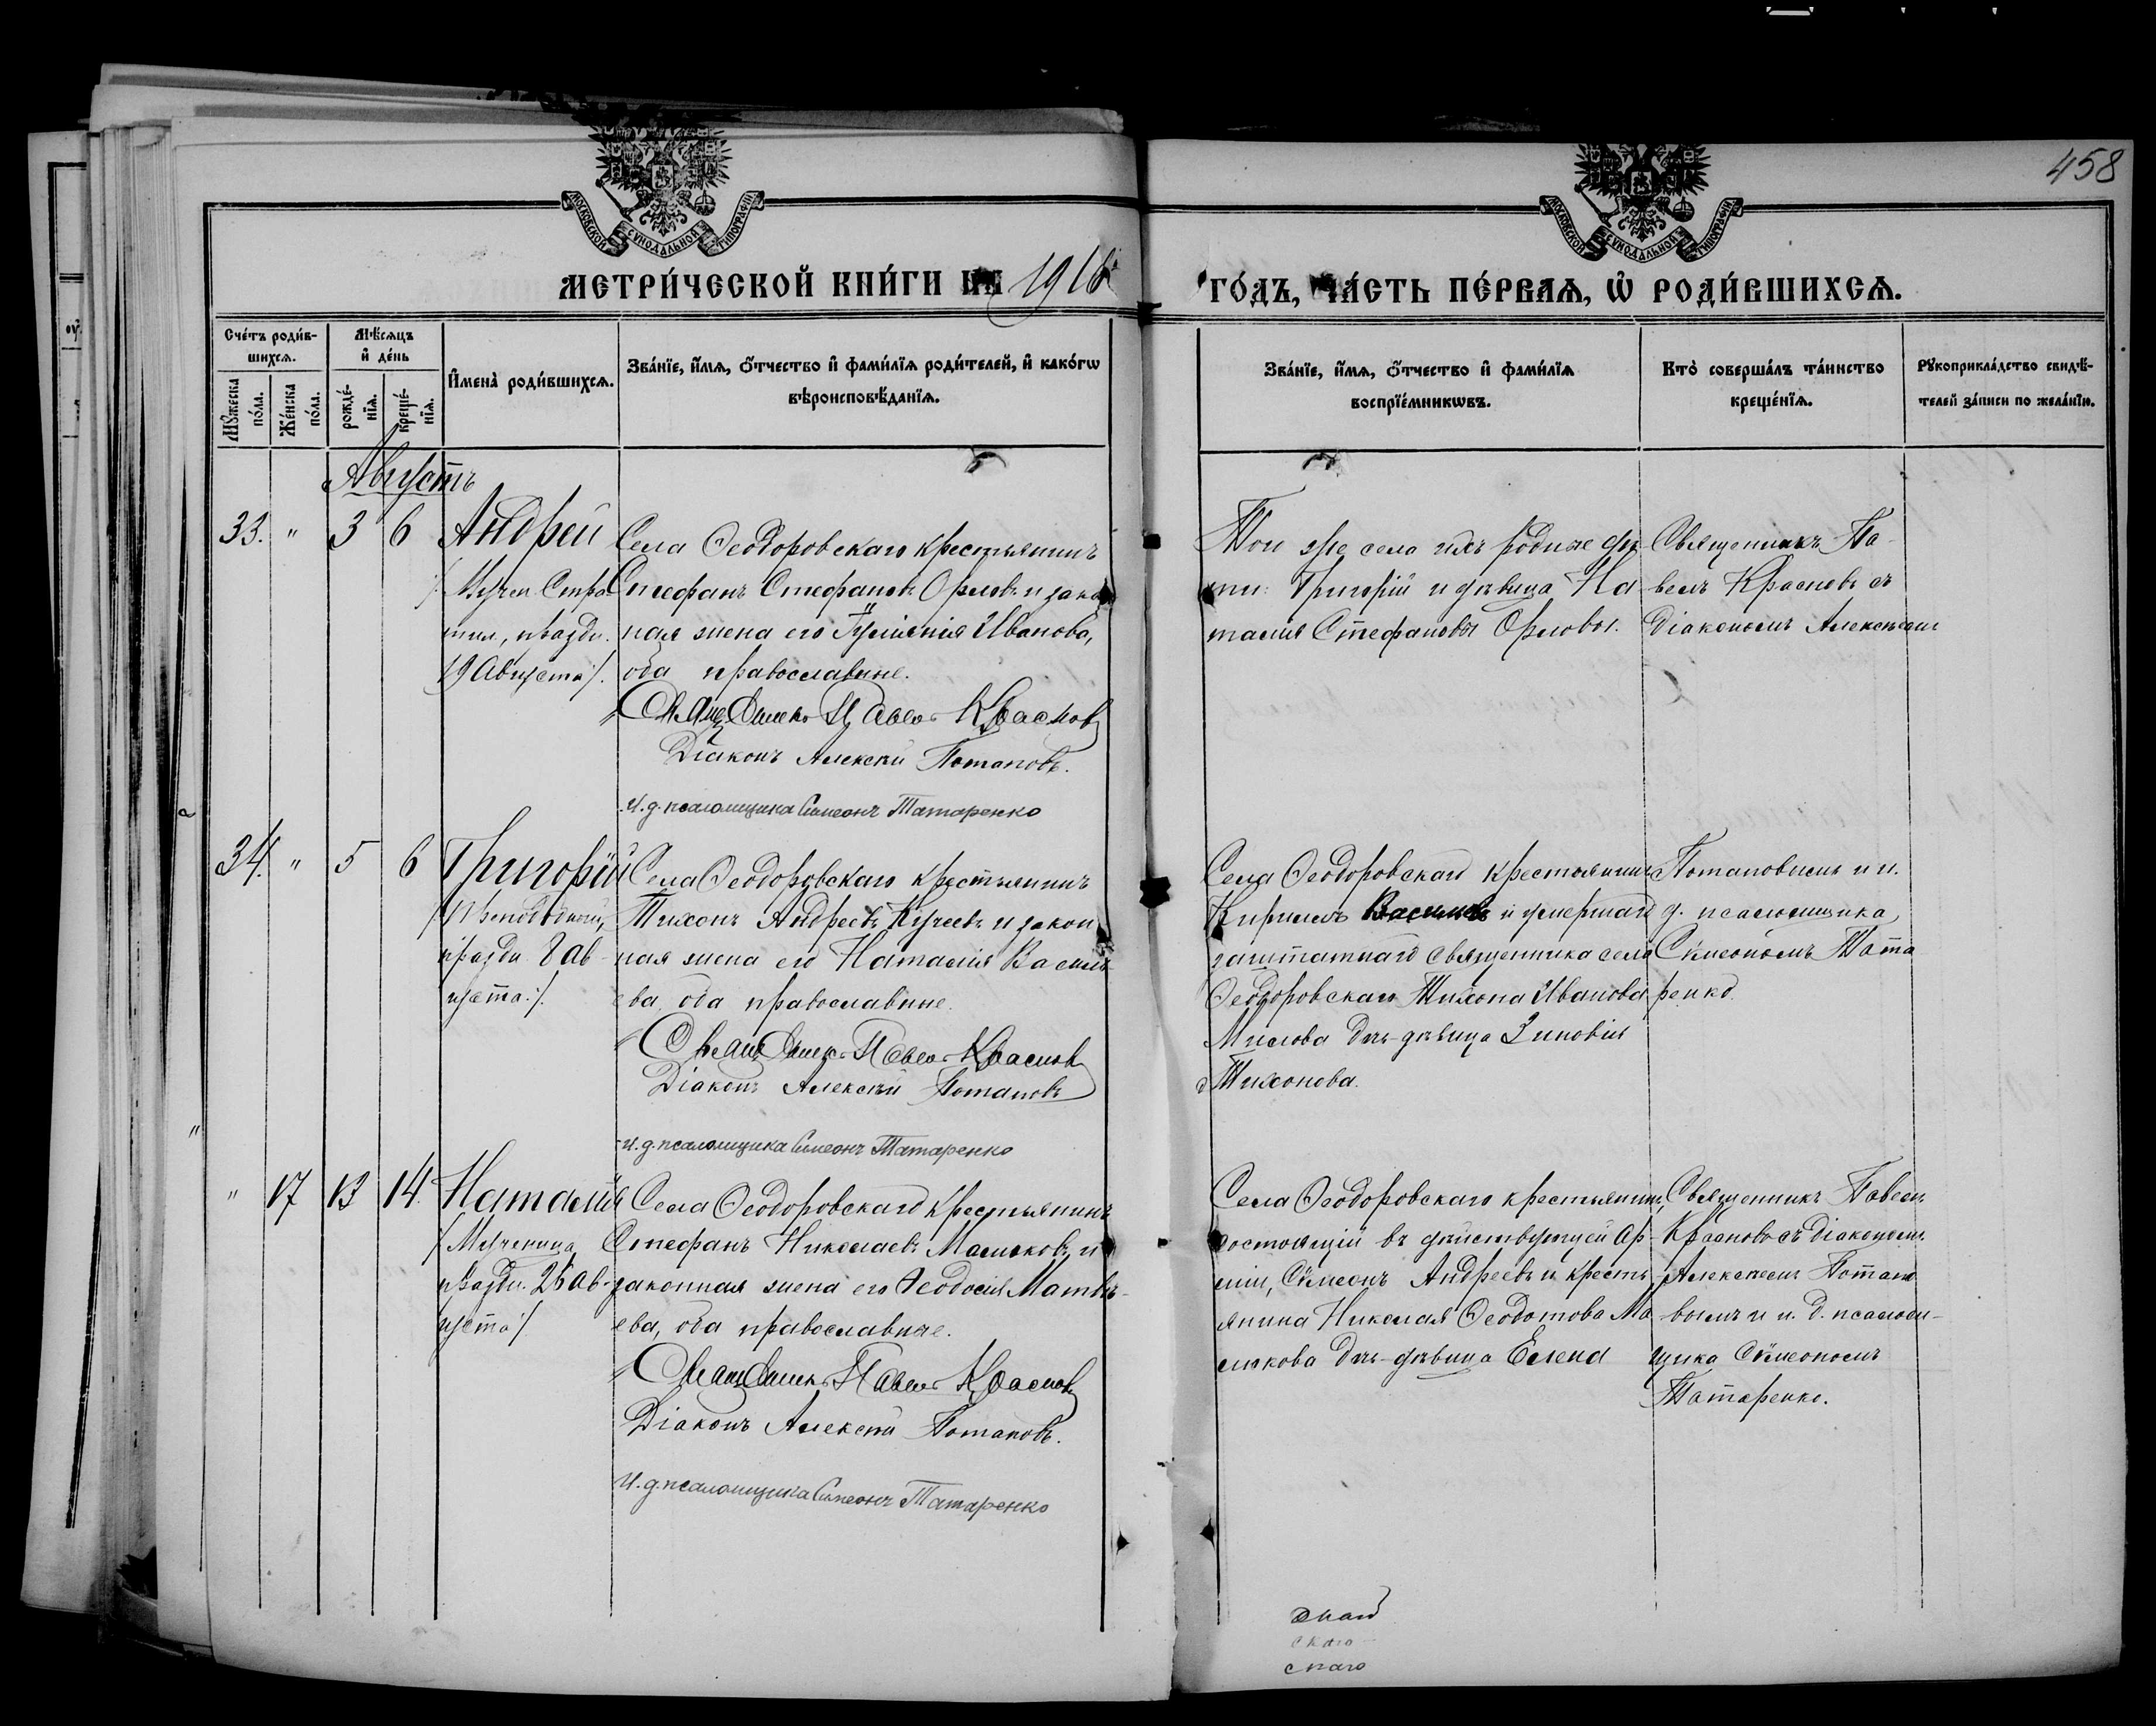 458
МОСКОВСКОЙ СѴНОДАЛЬНОЙ ТИПОГРАФІИ
МОСКОВСКОЙ СѴНОДАЛЬНОЙ ТИПОГРАФІИ
МЕТРИ́ЧЕСКОЙ КНИ́ГИ НА 1916 ГО́ДЪ, ЧА́СТЬ ПЕ́РВАѦ, Ѡ҆ РОДИ́ВШИХСѦ.
Сче́тъ роди́в-
шихсѧ.
Мꙋ́жеска по́ла.
Же́нска по́ла.
Мѣ́сѧцъ
и҆ де́нь
рожде́-
нїѧ.
креще́-
нїѧ.
И҆мена̀ роди́вшихсѧ.
Зва́нїе, и҆́мѧ, ѻ҆́тчество и҆ фами́лїѧ роди́телей, и҆ како́гѡ
вѣроисповѣ́данїѧ.
Зва́нїе, и҆́мѧ, ѻ҆́тчество и҆ фами́лїѧ
воспрїе́мникѡвъ.
Кто̀ соверша́лъ та́инство
креще́нїѧ.
Рꙋкоприкла́дство свидѣ́-
телей за́писи по жела́нїю.
Августъ
33. " 3 6 Андрей
/: Мучен. Стра
тил, праздн.
19 Августа :/.
Села Ѳеодоровскаго крестьянинъ
Стефанъ Стефановъ Орловъ и закон
ная жена его Іуліанія Иванова,
оба православные.
Священникъ Павелъ Красновъ
Діаконъ Алексѣй Потаповъ.
И.д. псаломщика Симеонъ Татаренко
Того же села ихъ родные дѣ-
ти: Григорій и дѣвица На
талія Стефановы Орловы.
Священникъ Па-
велъ Красновъ съ
Діакономъ Алексѣемъ
34. " 5 6 Григорій
/: Преподобный,
праздн. 8 ав-
густа :/.
Села Ѳеодоровскаго крестьянинъ
Тихонъ Андреевъ Кучеевъ и закон
ная жена его Наталія Василь
ева, оба православные.
Священникъ Павелъ Красновъ
Діаконъ Алексѣй Потаповъ
И.д. псаломщика Симеонъ Татаренко
Села Ѳеодоровскаго крестьянинъ
Кириллъ Васильевъ и умершаго
заштатнаго священника села
Ѳеодоровскаго Тихона Иванова
Милова дчь-дѣвица Зиновія
Тихонова.
Потаповымъ и и.
д. псаломщика
Симеономъ Тата
ренко.
" 17 13 14. Наталія
/: Мученица
праздн. 26 ав-
густа :/
Села Ѳеодоровскаго крестьянинъ
Стефанъ Николаевъ Мальковъ и
законная жена его Ѳеодосія Матвѣ-
ева, оба православные.
Священникъ Павелъ Красновъ
Діаконъ Алексѣй Потаповъ.
И.д. псаломщика Симеонъ Татаренко
Села Ѳеодоровскаго крестьянинъ,
состоящій въ дѣйствующей ар-
міи, Симеонъ Андреевъ и кресть
янина Николая Ѳеодотова Ма
лькова дчь-дѣвица Елена
Священникъ Павелъ
Красновъ съ діакономъ
Алексѣемъ Потапо-
вымъ и и. д. псалом-
щика Симеономъ
Татаренко.
скаго
скаго